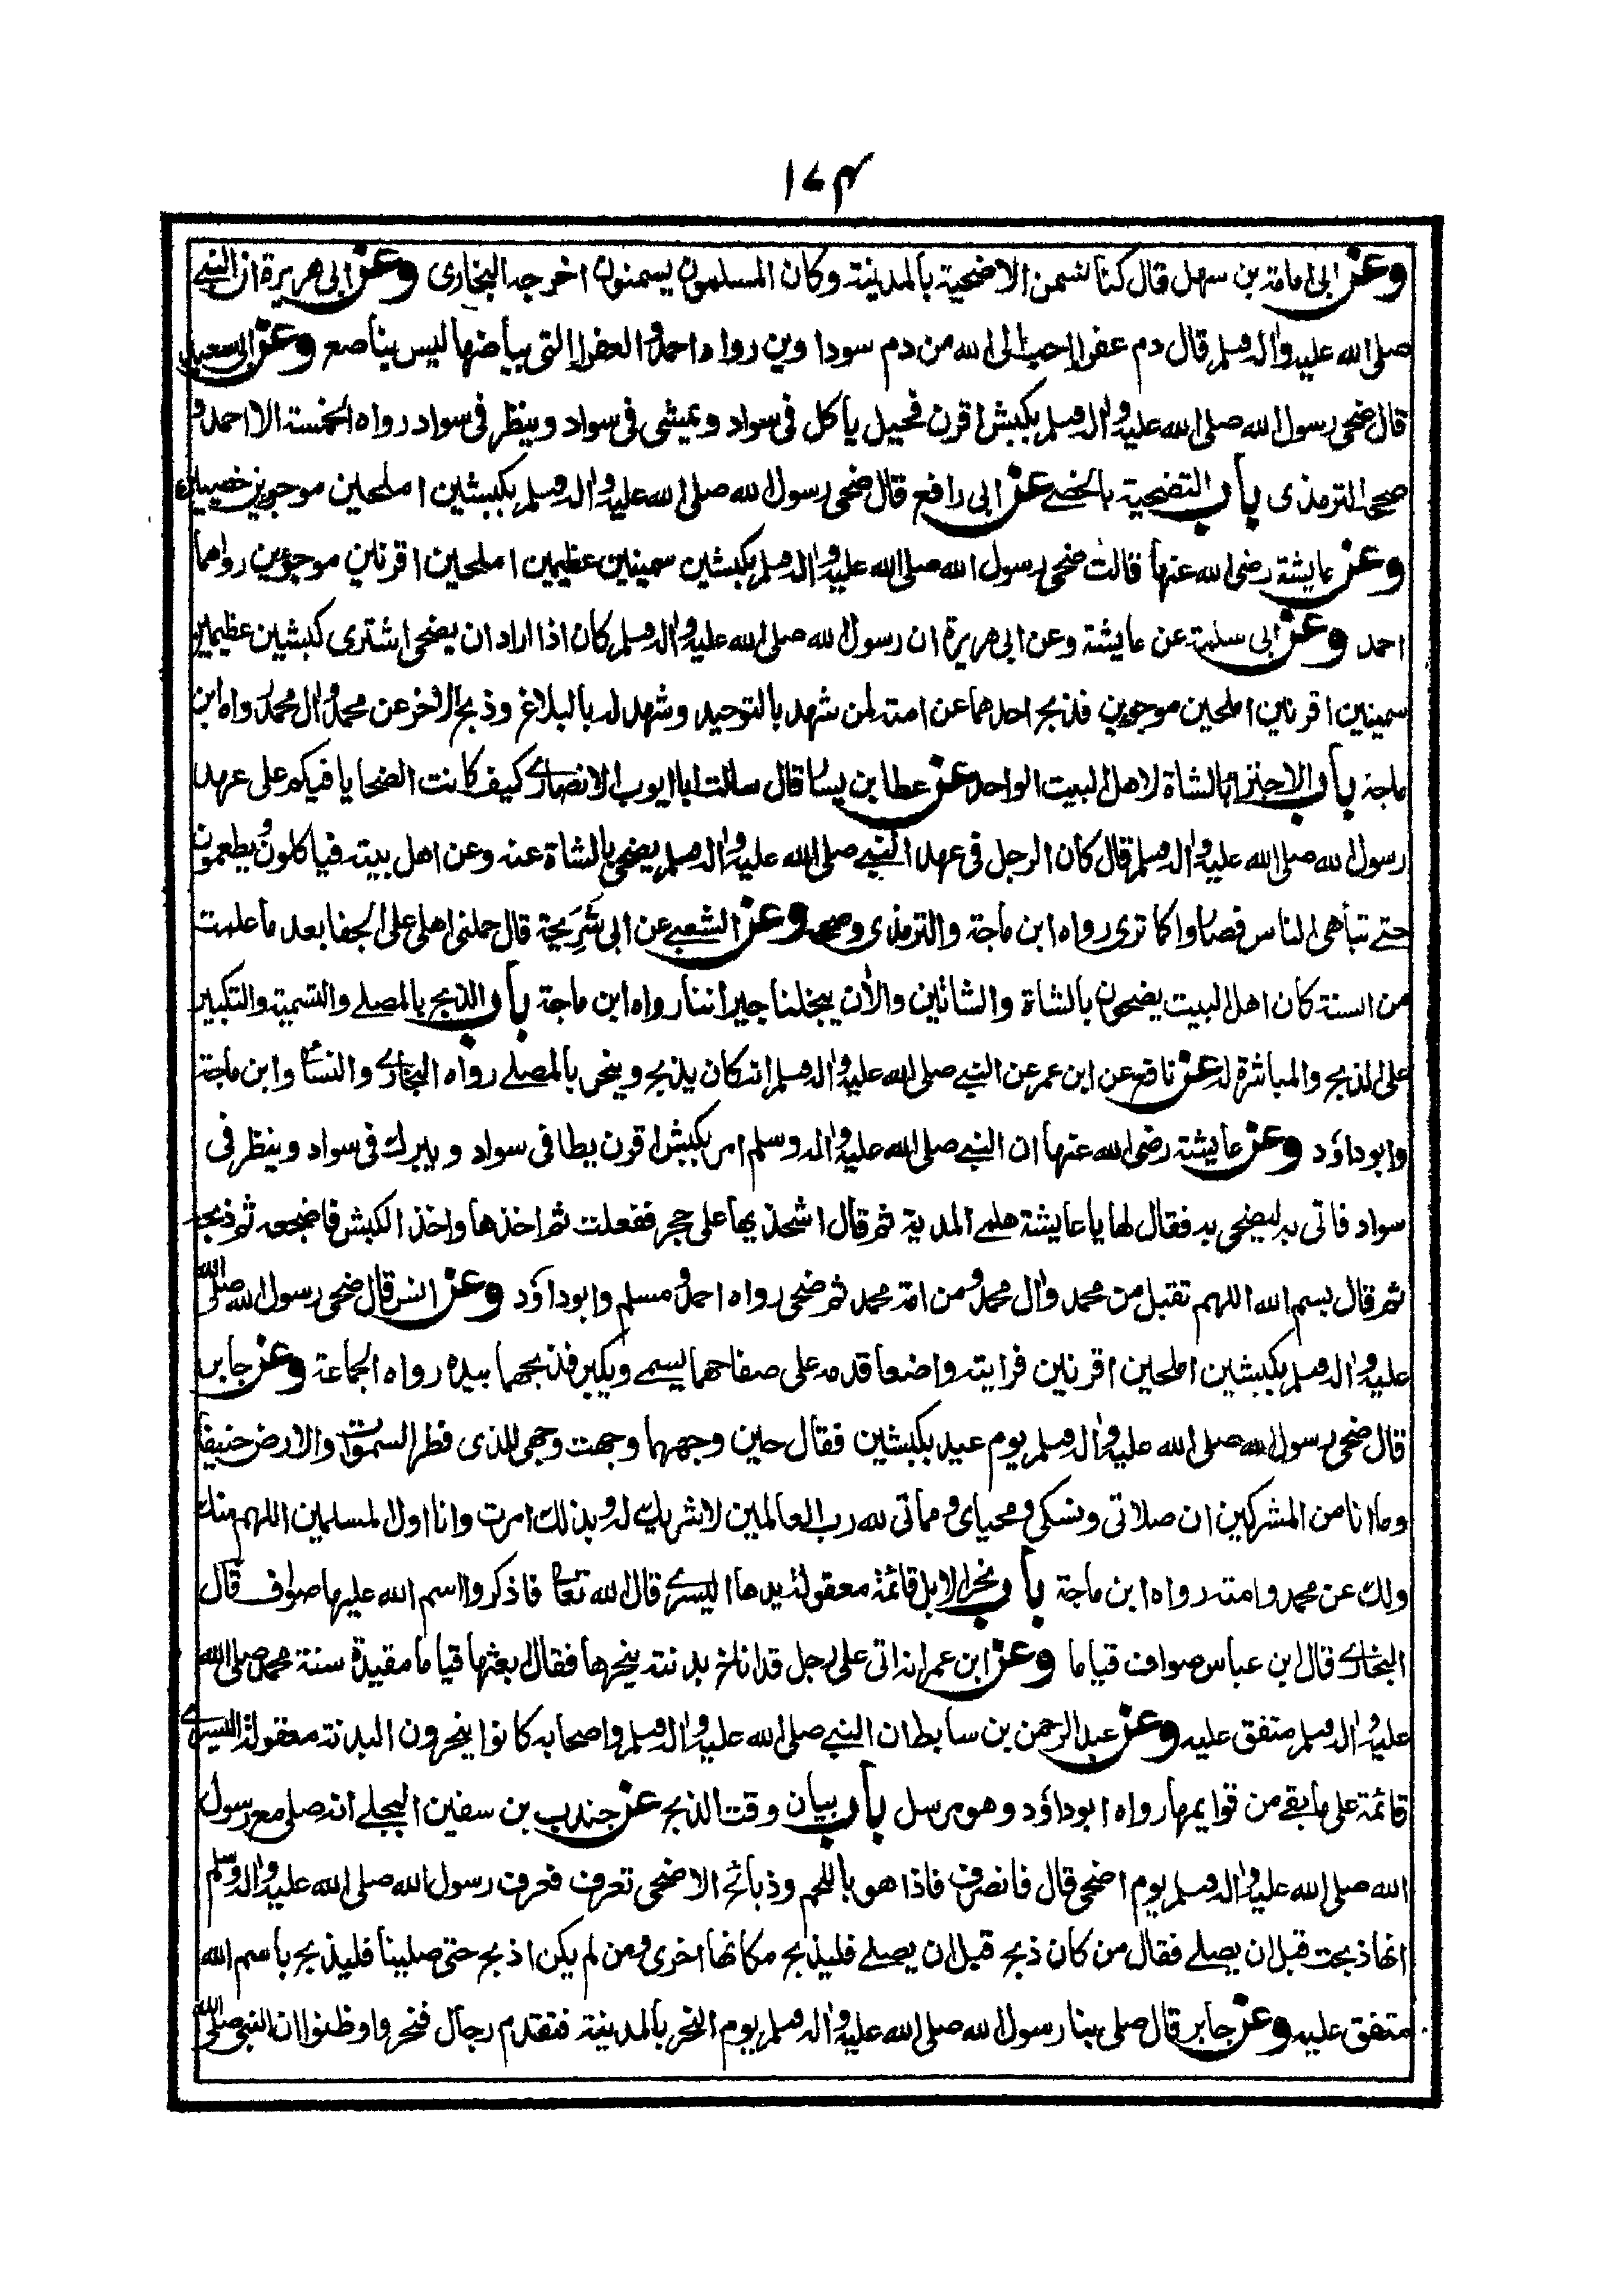 ١٧٤
وعن ابى امامة بن سهل قال كنا نسمن الاضحية بالمدينة وكان المسلمون يسمنون اخرجه البخارى وعن ابى هريرة ان النبى
صلى الله عليه واله وسلم قال دم عفراء احب الى الله من دم سوداوين رواه احمد والعفراء التى بياضها ليس بناصع وعن ابى سعيد
قال ضحى رسول الله صلى الله عليه واله وسلم بكبش اقرن فحيل ياكل فى سواد ويمشى فى سواد وينظر فى سواد رواه الخمسة الا احمد و
صححه الترمذى باب التضحية بالخصى عن ابى رافع قال ضحى رسول الله صلى الله عليه واله وسلم بكبشين املحين موجوين خصيين
وعن عايشة رضى الله عنها قالت ضحى رسول الله صلى الله عليه واله وسلم بكبشين سمينين عظيمين املحين اقرنين موجوءين رواهما
احمد وعن ابى سلمة عن عايشة وعن ابى هريرة ان رسول الله صلى الله عليه واله وسلم كان اذا اراد ان يضحى اشترى كبشين عظيمين
سمينين اقرنين املحين موجوين فذبح احدهما عن امته لمن شهد بالتوحيد وشهد له بالبلاغ وذبح الاخر عن محمد وال محمد رواه ابن
ماجة باب الاجتزا بالشاة لاهل البيت الواحد عن عطا بن يسار قال سالت ابا ايوب الانصارى كيف كانت الضحايا فيكم على عهد
رسول الله صلى الله عليه واله وسلم قال كان الرجل فى عهد النبى صلى الله عليه واله وسلم يضحى بالشاة عنه وعن اهل بيته فياكلون ويطعمون
حتى تباهى الناس فصاروا كما ترى رواه ابن ماجة والترمذى وصححه وعن الشعبى عن ابى شَرِيحة قال حملنى اهلى على الجفا بعد ما علمت
من السنة كان اهل البيت يضحون بالشاة والشاتين والأن يبخلنا جيراننا رواه ابن ماجة باب الذبح بالمصلى والتسمية والتكبير
على الذبح والمباشرة له عن نافع عن ابن عمر عن النبى صلى الله عليه واله وسلم انه كان يذبح وينحر بالمصلى رواه البخارى والنسائى وابن ماجة
وابوداؤد وعن عايشة رضى الله عنها ان النبى صلى الله عليه واله وسلم امر بكبش اقرن يطا فى سواد ويبرك فى سواد وينظر فى
سواد فاتى به ليضحى به فقال لها يا عايشة هلمى المدية ثم قال اشحذيها على حجر ففعلت ثم اخذها واخذ الكبش فاضجعه ثم ذبحه
ثم قال بسم الله اللهم تقبل من محمد وال محمد ومن امة محمد ثم ضحى رواه احمد ومسلم وابوداؤد وعن انس قال ضحى رسول الله صلى الله
عليه واله وسلم بكبشين املحين اقرنين فرايته واضعا قدمه على صفاحهما يسمى ويكبر فذبحهما بيده رواه الجماعة وعن جابر
قال ضحى رسول الله صلى الله عليه واله وسلم يوم عيد بكبشين فقال حين وجههما وجهت وجهى للذى فطر السموات والارض حنيفا
وما انا من المشركين ان صلاتى ونسكى ومحياى ومماتى لله رب العالمين لا شريك له وبذلك امرت وانا اول المسلمين اللهم منك
ولك عن محمد وامته رواه ابن ماجة باب نحر الابل قائمة معقولة يدها اليسرى قال الله تعالى فاذكروا اسم الله عليها صواف قال
البخارى قال ابن عباس صواف قياما وعن ابن عمر انه اتى على رجل قد اناخ بدنته ينحرها فقال ابعثها قياما مقيدة سنة محمد صلى الله
عليه واله وسلم متفق عليه وعن عبد الرحمن بن سابط ان النبى صلى الله عليه واله وسلم واصحابه كانوا ينحرون البدنة معقولة اليسرى
قائمة على ما بقى من قوايمها رواه ابوداؤد وهو مرسل باب بيان وقت الذبح عن جندب بن سفين البجلى انه صلى مع رسول
الله صلى الله عليه واله وسلم يوم اضحى قال فانصرف فاذا هو باللحم وذبائح الاضحى تعرف فعرف رسول الله صلى الله عليه واله وسلم
انها ذبحت قبل ان يصلى فقال من كان ذبح قبل ان يصلى فليذبح مكانها اخرى ومن لم يكن اذبح حتى صلينا فليذبح باسم الله
متفق عليه وعن جابر قال صلى بنا رسول الله صلى الله عليه واله وسلم يوم النحر بالمدينة فتقدم رجال فنحروا وظنوا ان النبى صلى الله